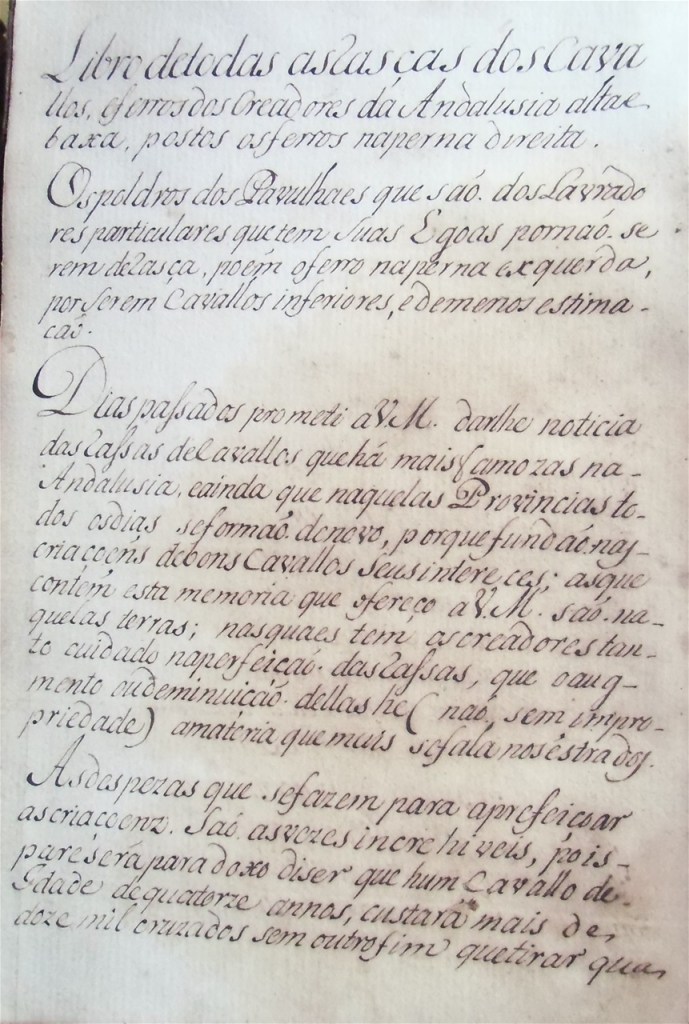 Libro detodas as Rasças dos Cava
llos, eferros dos Creadores dá Andalusia alta e
baxa, postos os ferros naperna direita.
Os poldros dos Pavulhaes que saó. dos Lavrado
res particulares que tem suas Egoas pornaó. se
rem deRasça, poem o ferro naperna exquerda,
por serem Cavallos inferiores, e demenos estima-
caó.
Dias passados prometi aV.M. darlhe noticia
das Rassas de Cavallos que há mais famozas na-
Andalusia, eainda que naquelas Provincias to-
dos os dias seformaó. denovo, porque fundaó. nas-
criacoens debons Cavallos seus intereces; as que
contém esta memoria que ofereço aV.M. saó. na-
quelas terras; nas quaes tem os creadores tan-
to cuidado naperfeicaó. das Rassas, que o aug-
mento oudeminuicaó. dellas he ( naó. sem impro-
priedade) amateria que mais sefala nos éstrados.
As despezas que sefazem para aprefeicoar
as criacoenz. Saó. as vezes increhiveis, pois-
pareserá paradoxo diser que hum Cavallo de-
Idade de quatorze annos, custará mais de
doze mil cruzados sem outro fim que tirar qua